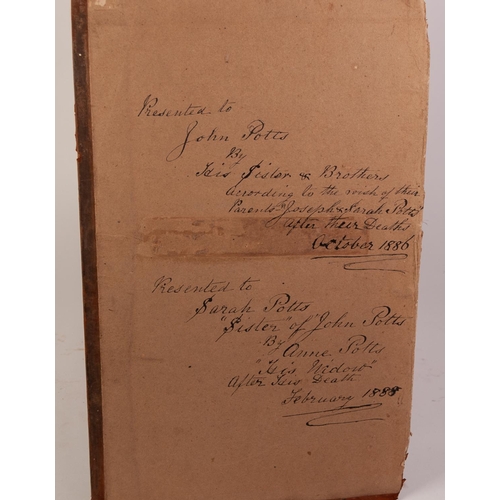 Presented to
John Potts
By
His Sister & Brothers
acording to the wish of their
Parents "Joseph & Sarah Potts"
after their Deaths
October 1886
Presented to
Sarah Potts
"Sister" of "John Potts
By
Anne Potts
"His Widow"
After His Death
February 1888